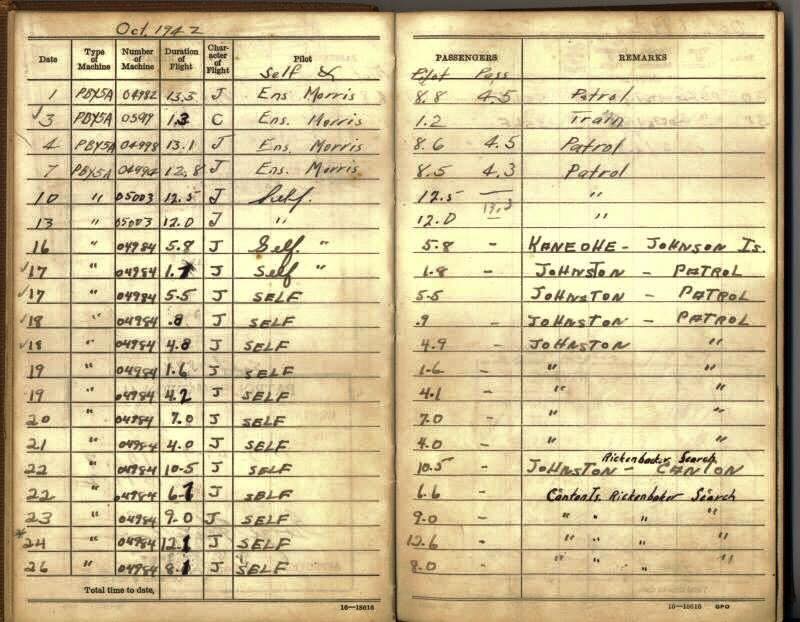 Oct. 1942
Date Type of Machine Number of Machine Duration of Flight Character of Flight Pilot PASSENGERS REMARKS
Self & Pilot Pass
1 PBY5A 04982 13.3 J Ens Morris 8.8 4.5 Patrol
√3 PBY5A 1.3 C Ens. Morris 1.2 Train
4 PBY5A 04998 13.1 J Ens. Morris 8.6 4.5 Patrol
7 PBY5A 04994 12.8 J Ens Morris 8.5 4.3 Patrol
10 " 05003 12.5 J Self. 12.5 — "
13 " 05003 12.0 J " 12.0 13.3 "
16 " 04984 5.8 J Self. " 5.8 - KANEOHE - JOHNSON Is.
√17 " 04984 1.7 J Self " 1.8 - JOHNSTON - PATROL
√17 " 04984 5.5 J SELF 5.5 - JOHNSTON - PATROL
√18 " 04984 .8 J SELF .9 - JOHNSTON - PATROL
√18 " 04984 4.8 J SELF 4.9 - JOHNSTON "
19 " 04984 1.6 J SELF 1.6 - " "
19 " 04984 4.2 J SELF 4.1 - " "
20 " 04984 7.0 J SELF 7.0 - " "
21 " 04984 4.0 J SELF 4.0 - " "
Rickenbacker Search
22 " 04984 10.5 J SELF 10.5 - JOHNSTON - CANTON
22 " 04984 6.7 J SELF 6.6 - Canton Is. Rickenbaker Search
23 " 04984 9.0 J SELF 9.0 - " " " "
*24 " 04984 12.1 J SELF 12.6 - " " " "
26 " 04984 8.1 J SELF 8.0 - " " " "
Total time to date,
16—18616 16—18616 GPO